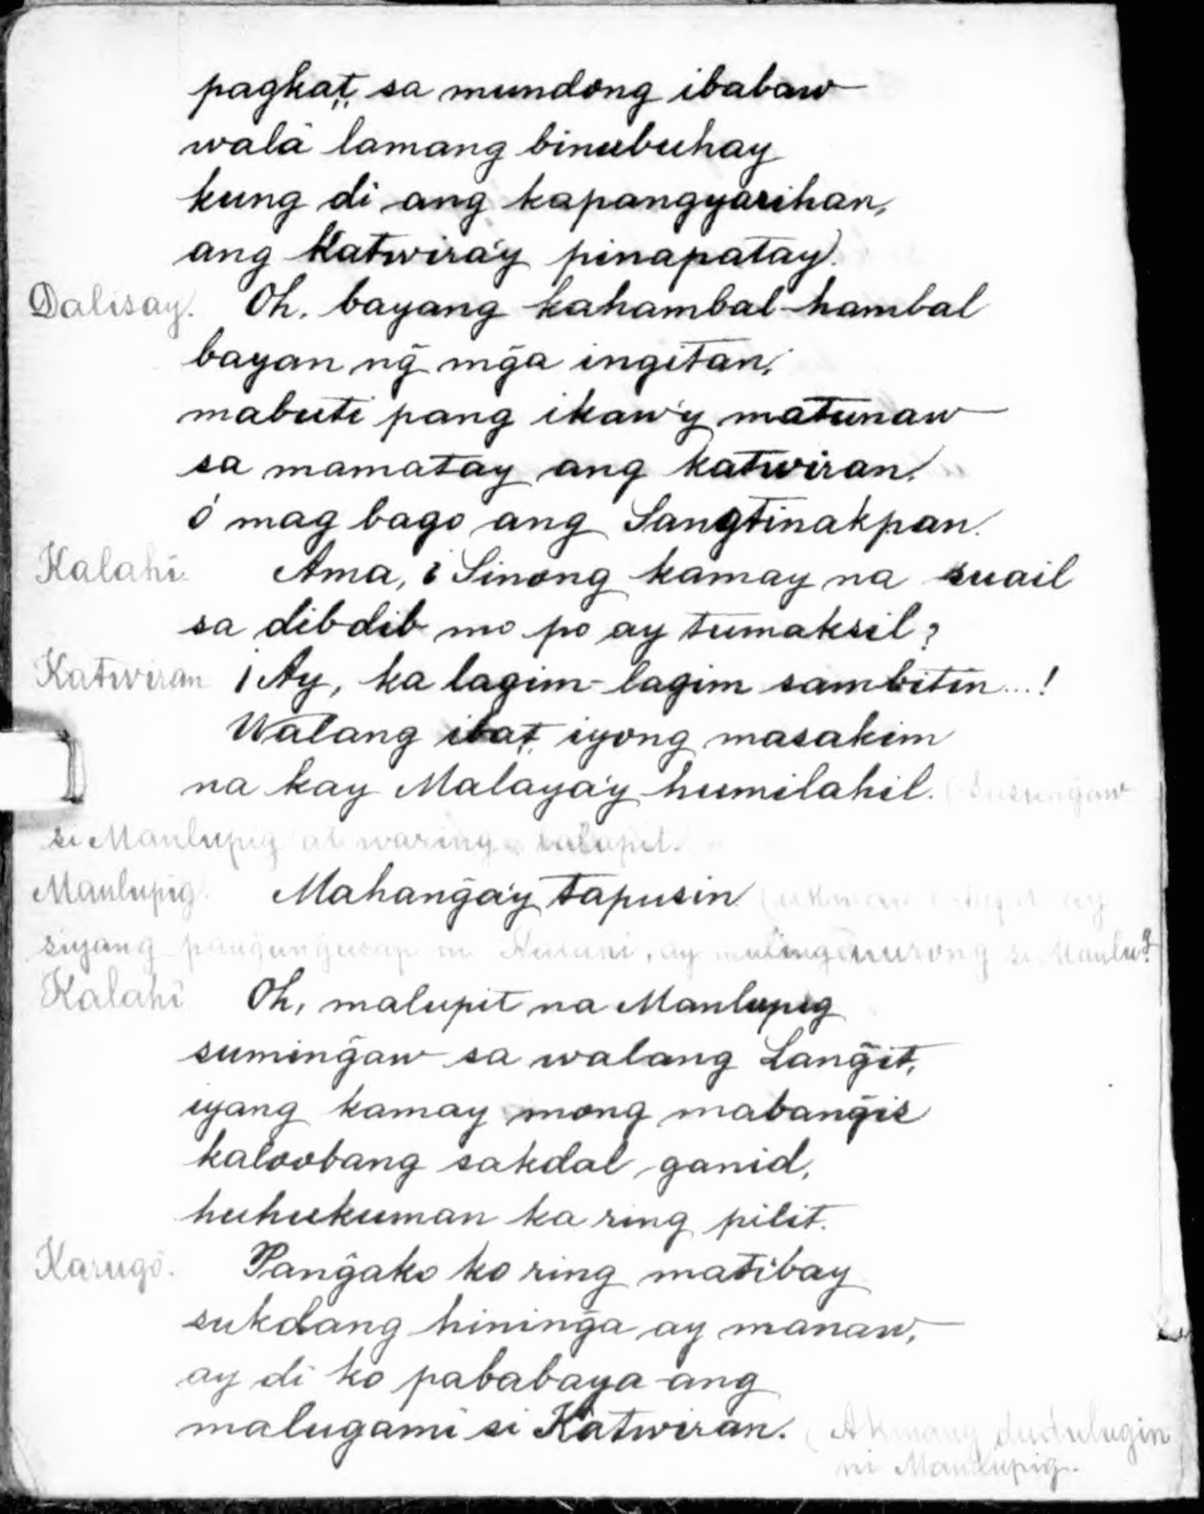 pagkat, sa mundong ibabaw
walâ lamang binubuhay
kung di ang kapangyarihan,
ang Katwira'y pinapatay.
Dalisay. Oh, bayang kahambal-hambal
bayan ng̃ mg̃a ingitan,
mabuti pang ikaw'y matunaw
sa mamatay ang katwiran.
ó mag bago ang Sangtinakpan.
Kalahi. Ama, ¿Sinong kamay na suail
sa dibdib mo po ay tumaksil?
Katwiran ¡Ay, ka lagim-lagim sambitin...!
Walang ibat, iyong masakim
na kay Malaya'y humilahil. (Susung̃aw
si Manlupig at waring lalapit.
Manlupig. Mahang̃a'y tapusin
siyang ni ay si Manlu?
Kalahî Oh, malupit na Manlupig
suming̃aw sa walang Lang̃it,
iyang kamay mong mabang̃is
kaloobang sakdal ganid,
huhukuman ka ring pilit.
Karugô. Pang̃ako ko ring matibay
sukdang hining̃a ay manaw,
ay di ko pababaya ang
malugami si Katwiran. (Akmang dudulugin
ni Manlupig.